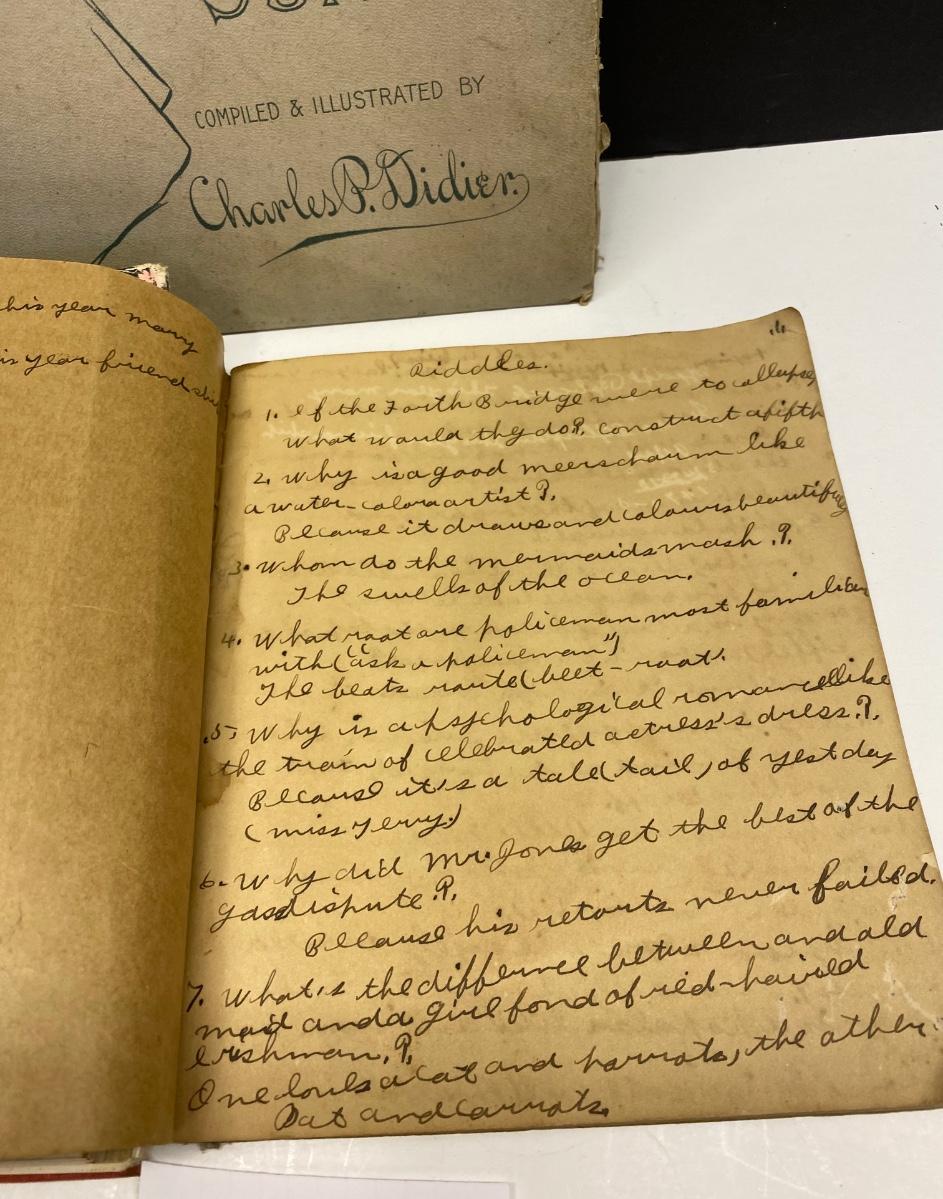 COMPILED & ILLUSTRATED BY
Charles P. Didier.
his year many
is year friend
Riddles.
1. If the Forth Bridge were to collapse,
what would they do?. construct a fifth
2. Why is a good meerschaum like
a water-colora artist?.
Because it draws and colours beautifully
3. Whom do the mermaids mash.?.
The swells of the ocean.
4. What root are policeman most familiar
with ("ask a policeman")
The beats route (beet-root.
5. Why is a psychological romance like
the train of celebrated actress's dress.?.
Because it's a tale (tail) of yestday
(miss Terry.)
6. Why did Mr. Jones get the best of the
gas dispute.?.
Because his retorts never failed.
7. What's the difference between and old
maid and a girl fond of red-haired
Irishman.?.
One louls a cat and parrots, the other
Pat and carrots.